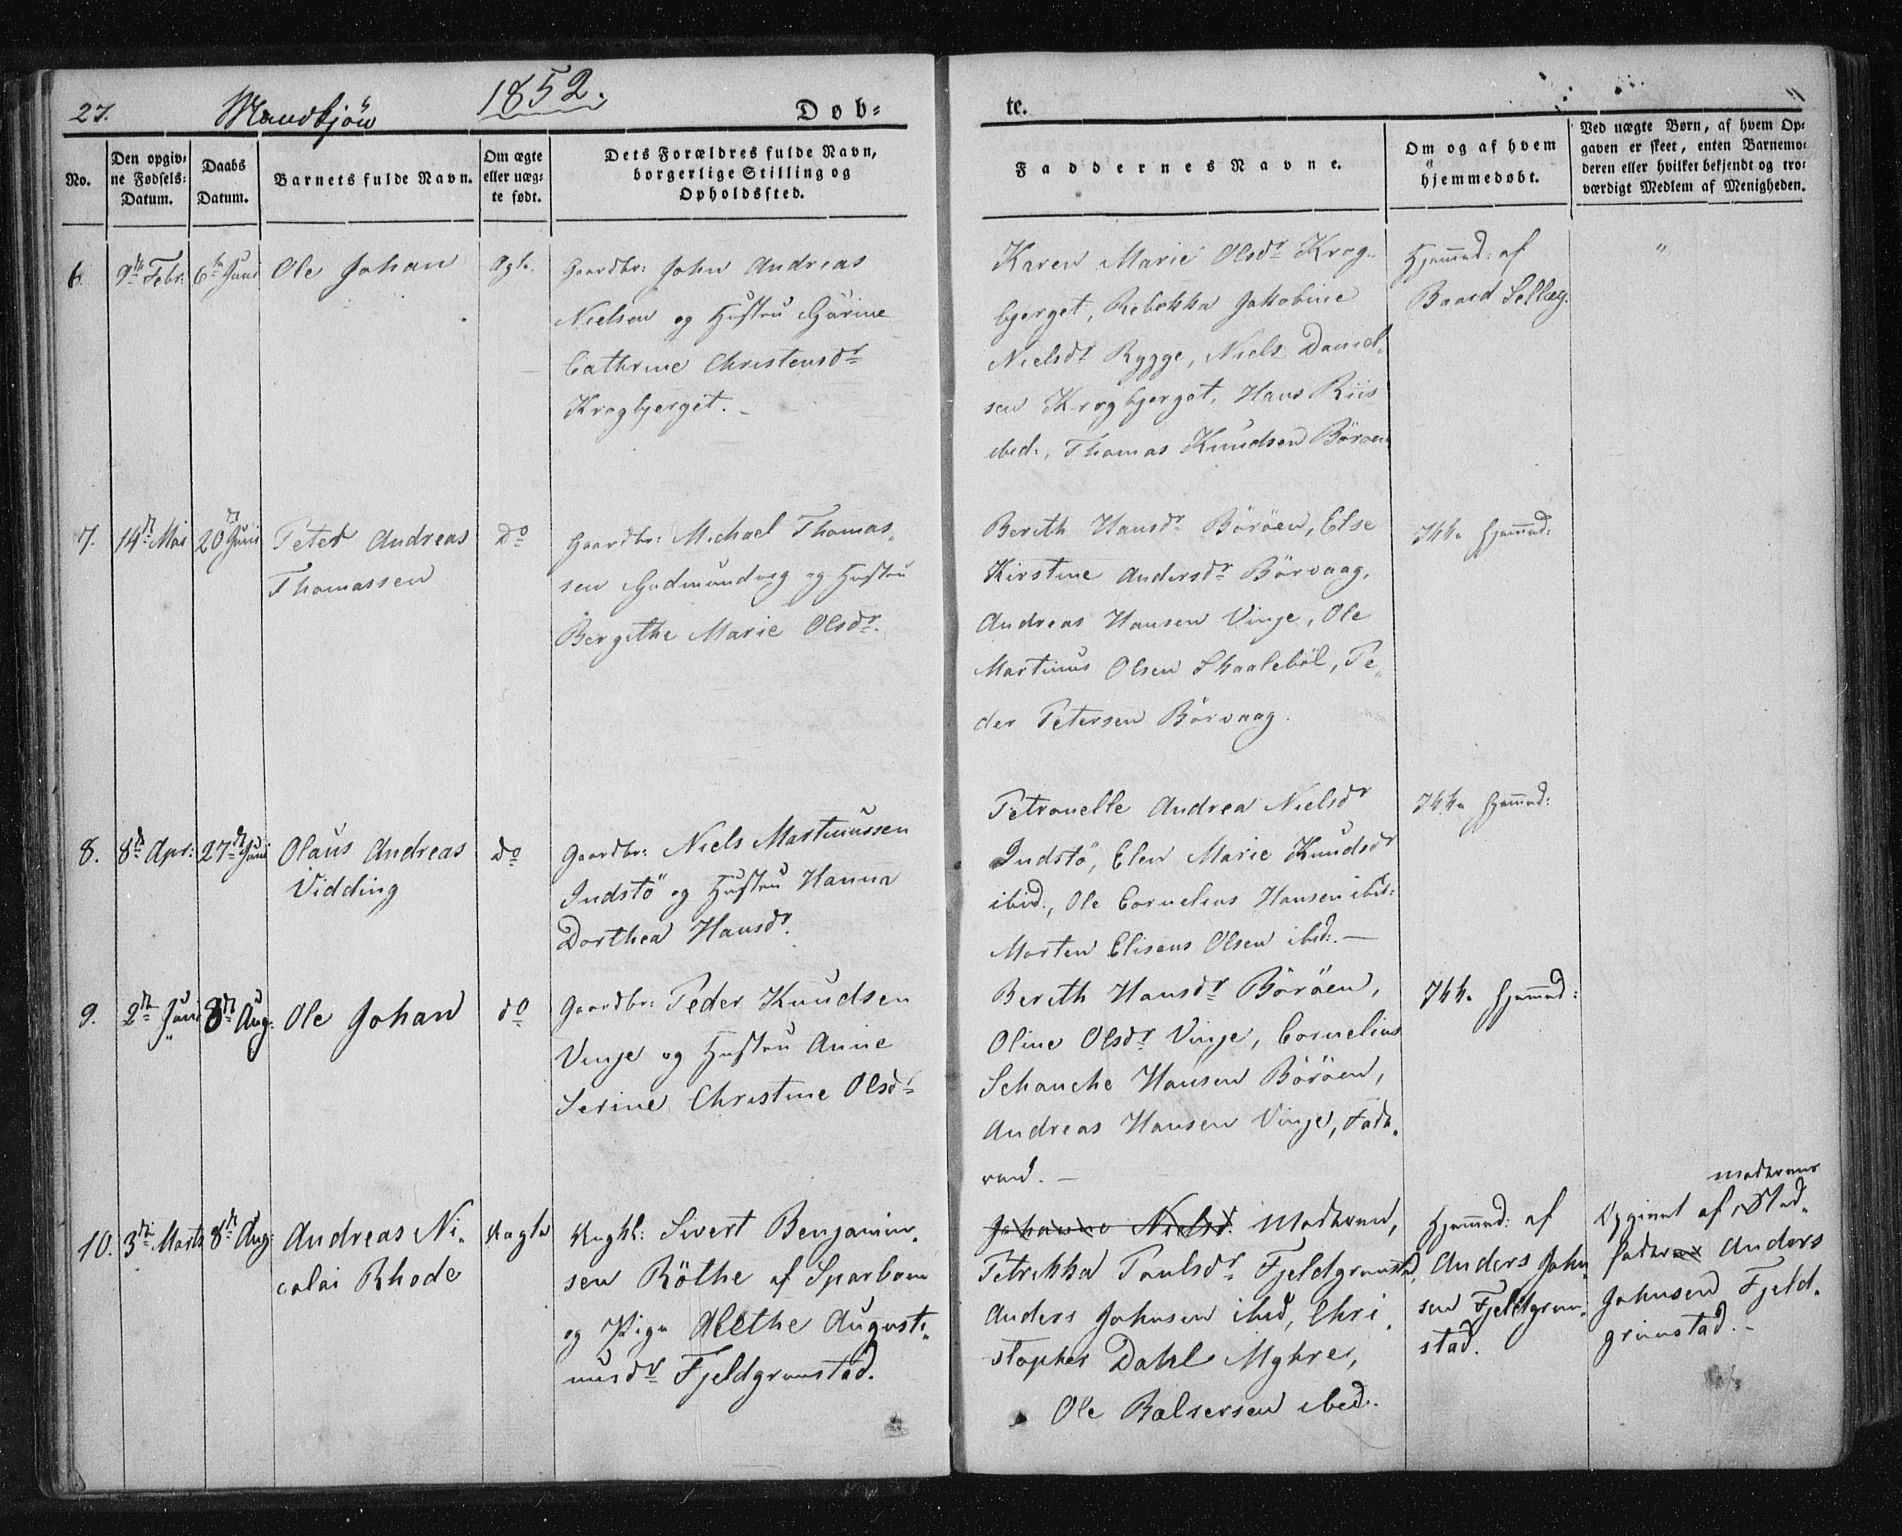 27.
Mandkjön
1852.
Døb-
te.
No.
Den opgiv-
ne Fødsels-
Datum.
Daabs
Datum.
Barnets fulde Navn.
Om ægte
eller uæg-
te født.
Dets Forældres fulde Navn,
borgerlige Stilling og
Opholdssted.
Faddernes Navne.
Om og af hvem
hjemmedøbt.
Ved uægte Børn, af hvem Op-
gaven er skeet, enten Barnemo-
deren eller hvilket bekjendt og tro-
værdigt Medlem af Menigheden.
6.
9de Febr.
6te Juni
Ole Johan
Ægte.
Gaardbr: John Andreas
Nielsen og Hustru Gurine
Cathrine Christensdr
Kragbjerget.
Karen Marie Olsdr Krag-
bjerget, Rebekka Jakobine
Nielsdr Rygge, Niels Daniel-
sen Kragbjerget, Hans Riis
ibid., Thomas Knudsen Böröen
Hjemmed: af
Baard Selleg.
"
7.
14de Mai
20de Juni
Peter Andreas
Thomassen
Do
Gaardbr: Michael Thomas-
sen Gudmundvog og Hustru
Bergithe Marie Olsdr.
Bereth Hansdr Böröen, Else
Kirstine Andersdr Börvaag,
Andreas Hansen Vinje, Ole
Martinus Olsen Skaaleböl, Pe-
der Petersen Börvaag.
Ikke hjemmed:
8.
8de Apr:
27de Juni
Olaus Andreas
Vidding
do
Gaardbr: Niels Martinussen
Indstö og Hustru Hanna
Dorthea Hansdr.
Petronelle Andrea Nielsdr
Indstö, Elen Marie Knudsdr
ibid:, Ole Cornelius Hansen ibid:
Morten Eliseus Olsen ibid:.
Ikke hjemmed:
9.
2de Juni
8de Aug:
Ole Johan
do
Gaardbr: Peder Knudsen
Vinje og Hustru Anne
Serine Christine Olsdr
Bereth Hansdr Böröen,
Oline Olsdr Vinje, Cornelius
Schanche Hansen Böröen,
Andreas Hansen Vinje, Fade-
ren.
Ikke hjemmed:
10.
3die Marts
8de Aug:
Andreas Ni-
colai Rhode
Uægte
Ungkl: Sivert Benjamin-
sen Röthe af Sparboen
og Pige Alethe Augusti-
nusdr Fjeldgrunstad.
Johanne Nielsd. Moderen,
Petrikka Poulsdr Fjeldgrunstad,
Anders Johnsen ibid, Chri-
stopher Dahl Myhre,
Ole Balsersen ibid.
Hjemmed: af
Anders John-
sen Fjeldgrun-
stad.
Opgivet af Moderens Sted-
fader Anders
Johnsen Fjeld-
grunstad.